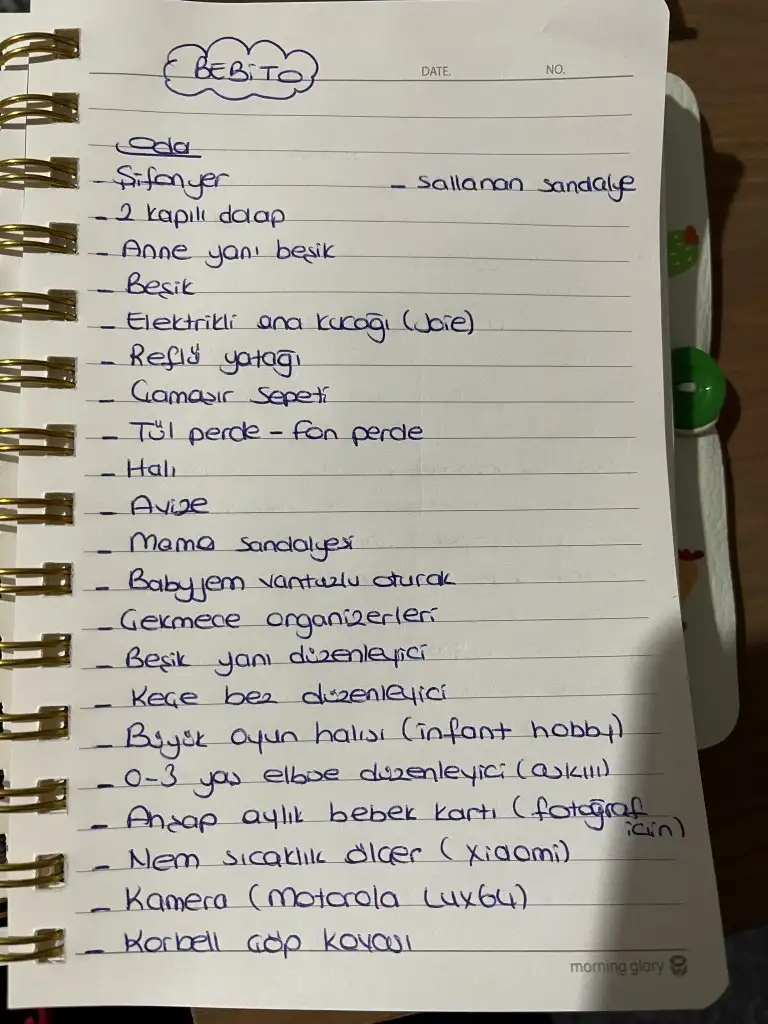 BEBİTO
DATE. NO.
Oda
- Şifonyer - sallanan sandalye
- 2 kapılı dolap
- Anne yanı beşik
- Beşik
- Elektrikli ana kucağı (Joie)
- Reflü yatağı
- Çamaşır sepeti
- Tül perde - fon perde
- Halı
- Avize
- Mama sandalyesi
- Babyjem vantuzlu oturak
- Çekmece organizerleri
- Beşik yanı düzenleyici
- Keçe bez düzenleyici
- Büyük oyun halısı (infant hobby)
- 0-3 yaş elbise düzenleyici (askılı)
- Ahşap aylık bebek kartı (fotoğraf
için)
- Nem sıcaklık ölçer (xiaomi)
- Kamera (Motorola Lux64)
- Korbell Çöp kovası
morning glory